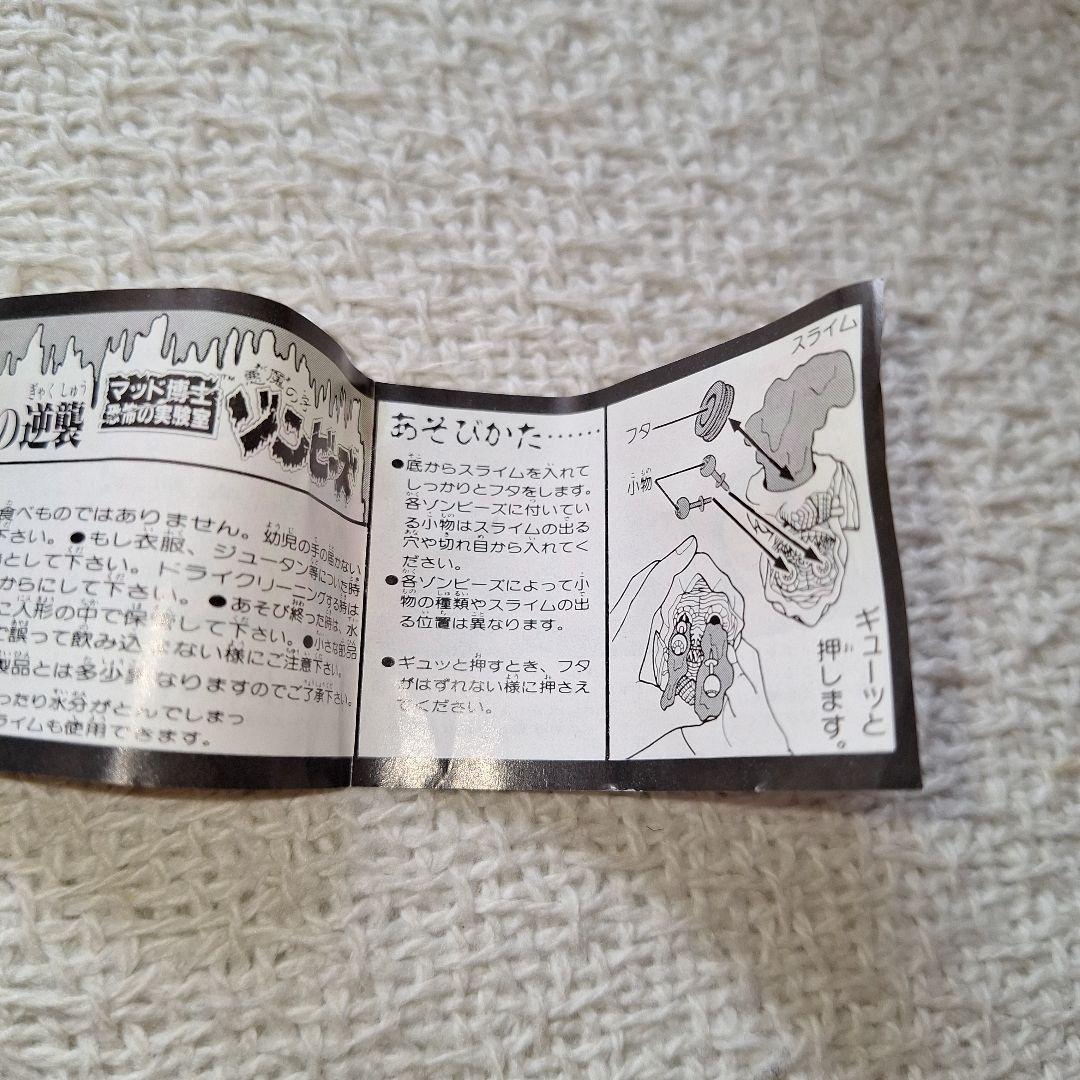 の逆襲
マッド博士
恐怖の実験室
TM
悪魔の子
ゾンビーズ
食べものではありません。幼児の手の届かない
下さい。●もし衣服、ジュータン等についた時
として下さい。ドライクリーニングする時は
からにして下さい。●あそび終った時は、水
に人形の中で保 して下さい。●小さな部品
で誤って飲み込 ない様にご注意下さい。
製品とは多少 なりますのでご了承下さい。
ったり水分がとんでしまっ
ライムも使用できます。
あそびかた……
●底からスライムを入れて
しっかりとフタをします。
各ゾンビーズに付いてい
る小物はスライムの出る
穴や切れ目から入れてく
ださい。
●各ゾンビーズによって小
物の種類やスライムの出
る位置は異なります。
●ギュッと押すとき、フタ
がはずれない様に押さえ
てください。
スライム
フタ
小物
ギューッと
押します。